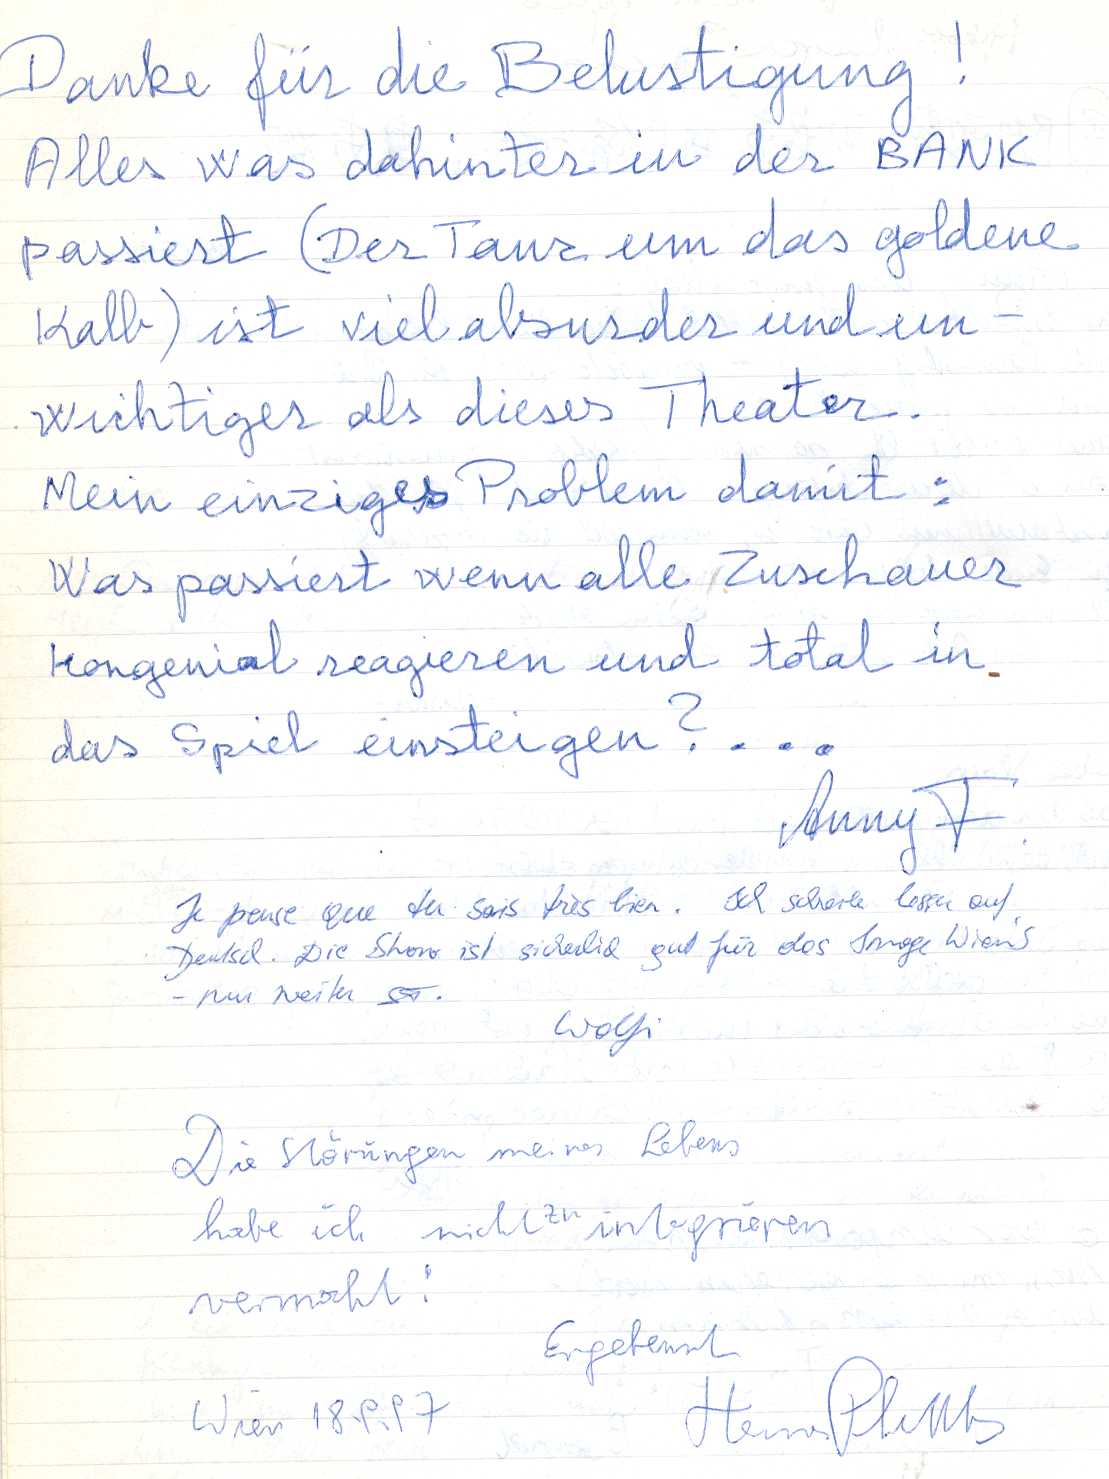 Danke für die Belustigung!
Alles was dahinter in der BANK
passiert (Der Tanz um das goldene
Kalb) ist viel absurder und un-
wichtiger als dieses Theater.
Mein einziges Problem damit:
Was passiert wenn alle Zuschauer
kongenial reagieren und total in
das Spiel einsteigen? . . . .
Anny F
Je pense que tu sais très bien. Ich schreibe besser auf
Deutsch. Die Show ist sicherlich gut für das Image Wien's
- nur weiter so.
Wolfi
Die Störungen meines Lebens
habe ich nicht zu integrieren
vermocht!
Ergebenst
Wien 18.9.97